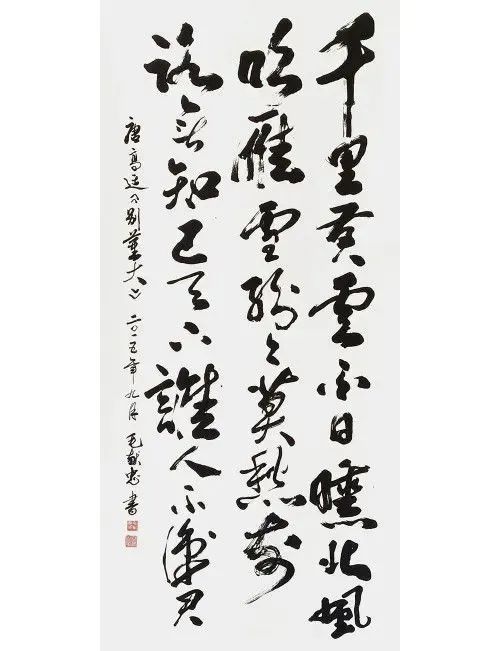 千里黄雲白日曛北風
吹雁雪紛々莫愁前
路無知己天下誰人不識君
唐高適《别董大》二〇一五年九月 毛献忠書